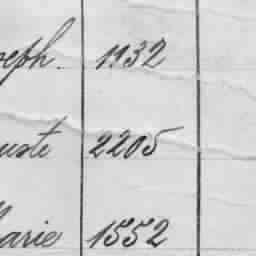 oseph. 1932
uste 2205
Marie 1552